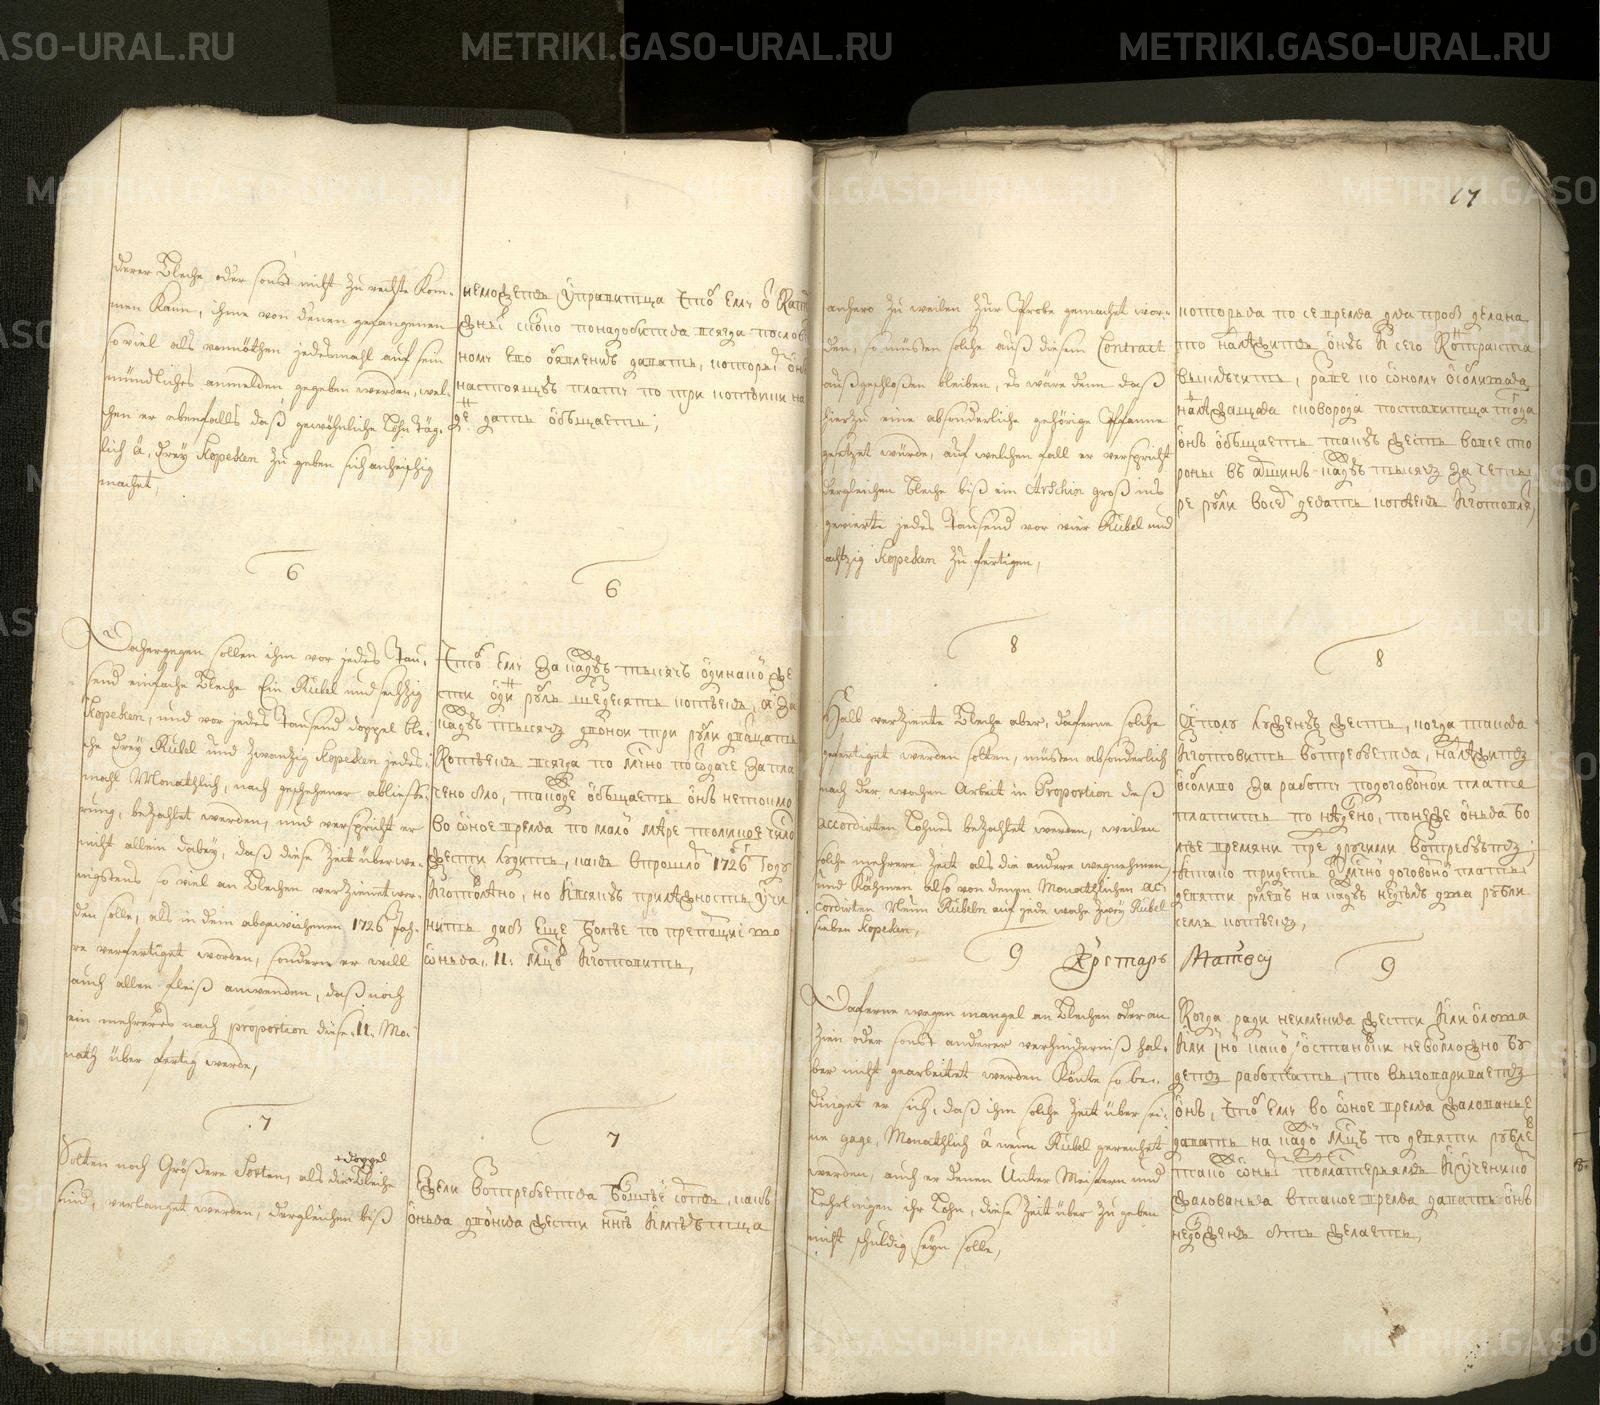 derer Bleche oder sonst nicht zu rechte kom-
men kann, ihme von denen gefangenen
so viel als vonnöthen jedesmahl auf sein
mündliches anmelden gegeben werden, wel-
chen er ebenfalls daß gewöhnliche Lohn täg-
lich â. drey Kopeken zu geben sich anheischig
machet,
6
Dahergegen sollen ihm vor jedes Tau-
send einfache Bleche Ein Rubel und sechzig
Kopeken, und vor jedes Tausend doppel ble-
che drey Rubel und zwanzig Kopeken jedes-
mahl Monathlich, nach geschehener abliefe-
rung, bezahlet werden, und verspricht er
nicht allein dabey, daß diese Zeit über we-
nigstens so viel an Blechen verzinnet wer-
den solle, als in dem abgewichenen 1726 Jah-
re verfertiget worden, sondern er will
auch allen fleiß anwenden, daß noch
ein mehreres nach proportion diese .11. Mo-
nath über fertig werde,
7
Solten noch Größere Sorten, als die Bleche
+doppel
sind, verlanget werden, dergleichen biß
неможетъ управитца чтоб ему
ному его
настоящую плату по три копеики на
датъ обещаетъ,
6
Чтоб ему за каждую тысячю одинакой же
сти один рубль шедесятъ копеекъ, а за
каждую тысячю двоной три рубли двацать
Копеекъ всегда по
чено было, также обещаетъ онъ не токмо
во оное время по малой мере толикое число
жести лудить, какъ в прошлом 1726 году
изготовлено, но и всякую прилежность учи
нить дабы еще более по препорци то
оныя .11. мцъ изготовить,
7
Ежели вотребуетца болше сортъ, какъ
оная двойная жесть ннѣ имѣетца
17
anhero zu weilen zur Probe gemacht wor-
den, so müßen solche auß diesem Contract
außgeschloßen bleiben, es wäre denn daß
hierzu eine absonderliche gehörige Pfanne
gesetzet würde, auf welchen fall er verspricht
dergleichen bleche biß ein Arschin groß ins
gevierte jedes Tausend vor vier Rubel und
achtzig Kopeken zu fertigen,
8
Halb verzinte Bleche aber, daferne solche
gefertiget werden solten, müßen absonderlich
nach der wochen Arbeit in Proportion deß
accordirten Lohnes bezahlet werden, weilen
solche mehrere Zeit als die andere wegnehmen
und kähmen also von denen Monathlichen ac-
cordirten Neun Rubeln auf jede woche zwey Rubel
sieben Kopeken,
9
Daferne wegen mangel an Blechen oder an
Zien oder sonst anderer verhinderniß hal-
ber nicht gearbeitet werden könte so be-
dinget er sich, daß ihm solche Zeit über sei-
ne gage, Monathlich â neun Rubel gereichet
werden, auch er denen Unter Meistern und
Lehrlingen ihr Lohn, diese Zeit über zu geben
nicht schuldig seyn solle,
которая по се время для проб делана
то надлежитъ оную ис сего Контракта
выключить, разве ко оному особливая
надлежащая сковорода поставитца тогда
онъ обещаетъ такую жесть во все сто
роны въ аршинъ каждую тысячю за четы
ре рубли восемдесятъ копеекъ изготовля
8
А полу луженую жесть, когда такая
изготовить вотребуетца, надлежитъ
особливо за работу по договорной плате
платить по недѣлно, понеже оная бо
лѣе времяни
и тако придетъ
девяти рублевъ на каждую недѣлю два рубли
семь копеекъ,
Матвеи
9
Когда ради неимения жести или олова
или иной какой остановки невозможно бу
детъ работать, то выговариваетъ
онъ, чтоб ему во оное время жалованье
давать на каждой мцъ по девяти рублев
також оным подмастерьямъ и ученико
жалованья в такое время давать онъ
недолженъ быть желаетъ,